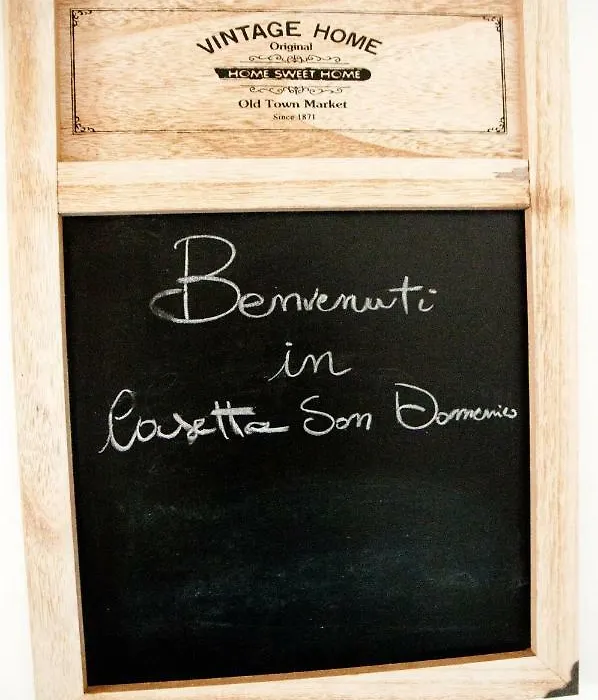 VINTAGE HOME
Original
HOME SWEET HOME
Old Town Market
Since 1871
Benvenuti
in
Casetta San Domenico